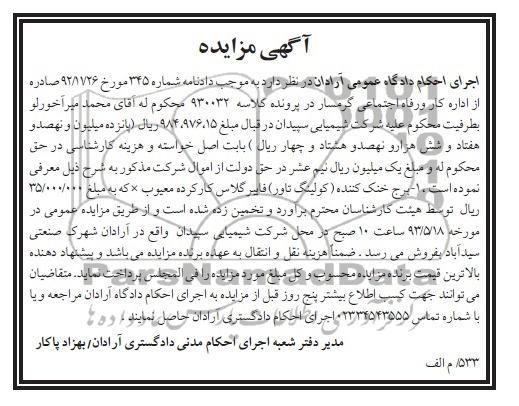 آگهی مزایده
اجرای احکام دادگاه عمومی آرادان در نظر دارد به موجب دادنامه شماره ۳۴۵ مورخ ۹۲/۱۷۲۶ صادره
از اداره کار ورفاه اجتماعی گرمسار در پرونده کلاسه ۹۳۰۰۳۲ محکوم له آقای محمد میرآخورلو
بطرفیت محکوم علیه شرکت شیمیایی سپیدان در قبال مبلغ ۹۸۴،۹۷۶،۱۵ ریال (پانزده میلیون و نهصدو
هفتاد و شش هزارو نهصدو هشتاد و چهار ریال ) بابت اصل خواسته و هزینه کارشناسی در حق
محکوم له و مبلغ یک میلیون ریال نیم عشر در حق دولت از اموال شرکت مذکور به شرح ذیل معرفی
نموده است ،۱- برج خنک کننده (کولینگ تاور) فایبر گلاس کارکرده معیوب × که به مبلغ ۳۵/۰۰۰/۰۰۰
ریال توسط هیئت کارشناسان محترم برآورد و تخمین زده شده است و از طریق مزایده عمومی در
مورخه ۹۳/۵۱۸ ساعت ۱۰ صبح در محل شرکت شیمیایی سپیدان واقع در آرادان شهرک صنعتی
سیدآباد بفروش می رسد . ضمنا هزینه نقل و انتقال به عهده برنده مزایده می باشد و پیشنهاد دهنده
بالاترین قیمت برنده مزایده محسوب و کل مبلغ مورد مزایده را فی المجلس پرداخت نماید. متقاضیان
می توانند جهت کسب اطلاع بیشتر پنج روز قبل از مزایده به اجرای احکام دادگاه آرادان مراجعه و یا
با شماره تماس ۰۲۳۳۴۵۴۳۵۵۵ اجرای احکام دادگستری آرادان حاصل نمایند
مدیر دفتر شعبه اجرای احکام مدنی دادگستری آرادان/ بهزاد پاکار
۵۳۳/ م الف
ParsNamadData